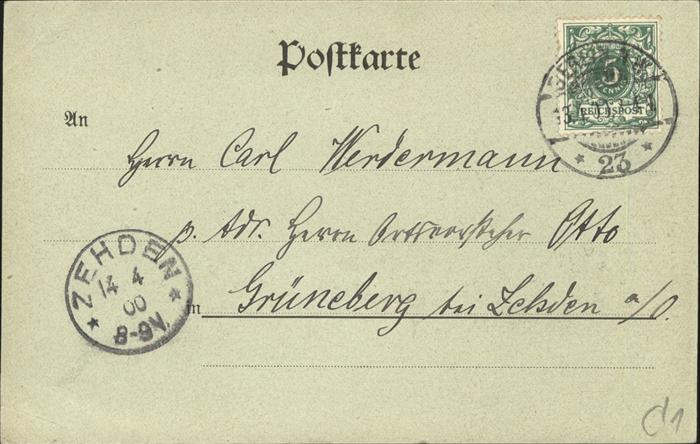 Postkarte
5
REICHSPOST
* 23 *
An
Herrn Carl Werdermann
p. Adr. Herrn Ortsvorsteher Otto
in Grüneberg bei Zehden a/O.
ZEHDEN
14 4
00
8-9V.
d1